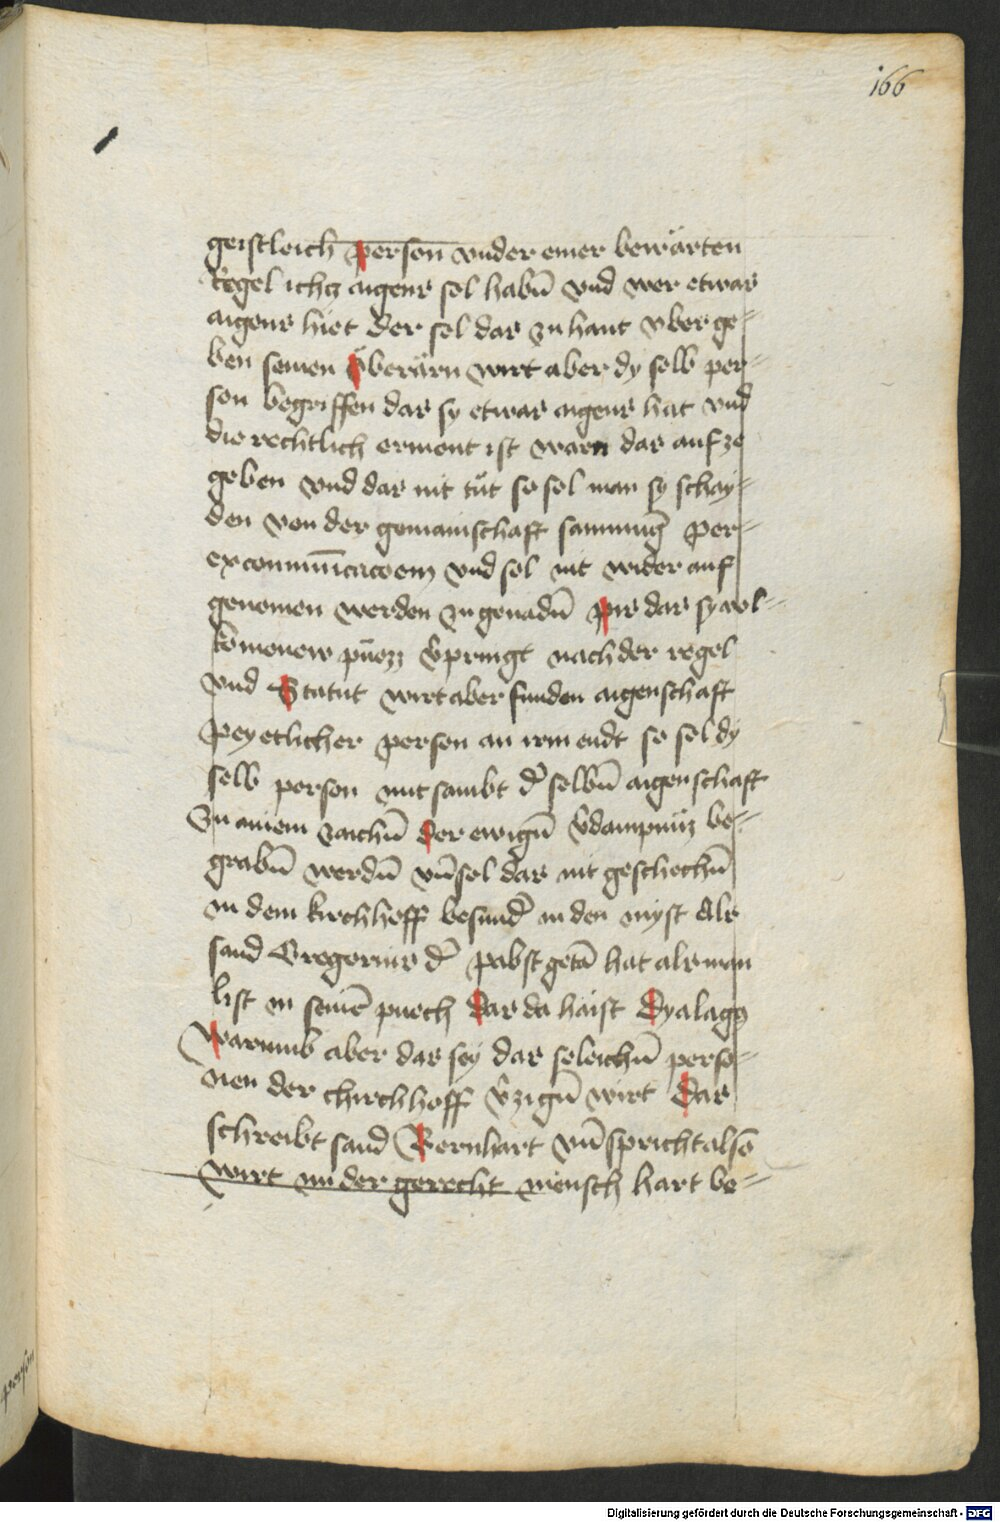 166
geistleich person vnder einer bewärten
Regel ichcz aigens sol habn̄ vnd wer etwas
aigens hiet der sol das zu hant vber ge=
ben seinen Öberärn wirt aber dy selb per=
son begriffen das sy etwas aigens hat vnd
die rechtlich ermont ist warn das auf ze
geben vnd das nit tüt so sol man sy schay=
den von der gemainschaft sammūg per=
excommūicacoem vnd sol nit wider auf
genomen werden zu genadn̄ pis das sy vol=
komenew püezz v̄pringt nach der regel
vnd Statut wirt aber funden aigenschaft
pey etlicher person an irm endt so sol dy
selb person mit sambt d̄ selbn̄ aigenschaft
zu ainem zaichn̄ der ewign̄ v̄dampnüz be=
grabn̄ werdn̄ vn̄ sol das nit geschechn̄
in dem kirchhoff besund̄ in den myst Als
sand Gregorius d̄ pabst getā hat als man
list in seinē puech das da haist Dyalagꝰ
Warumb aber das sey das soleichn̄ perso=
nen der chirchhoff v̄zign̄ wirt Das
schreibt sand Bernhart vn̄ spricht alsō
wirt nu der gerecht mensch hart be=
person
Digitalisierung gefördert durch die Deutsche Forschungsgemeinschaft - DFG